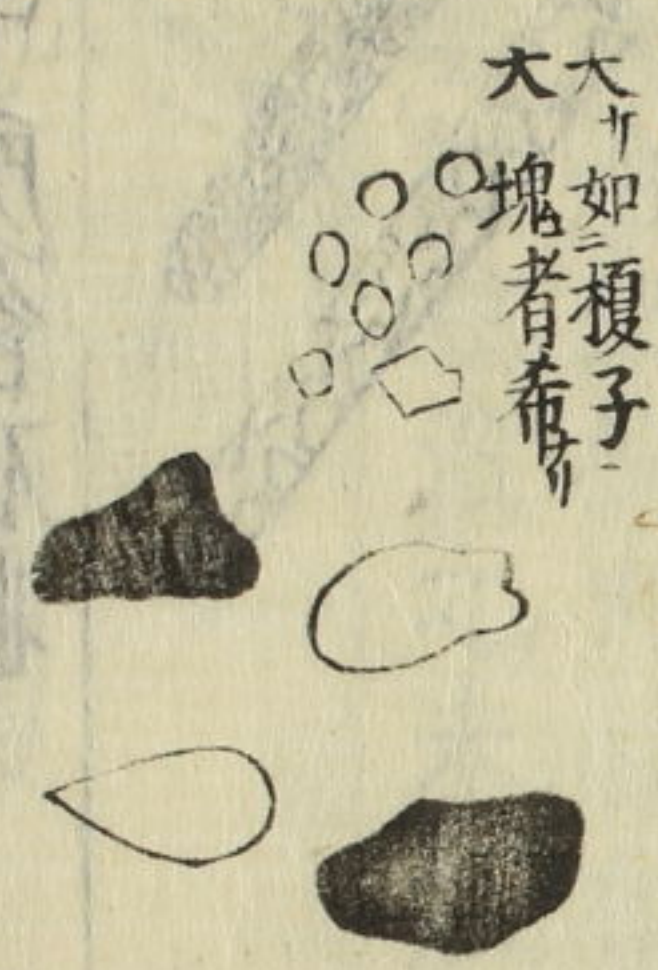 大サ如ニ榎子一
大塊ナル者希ナリ